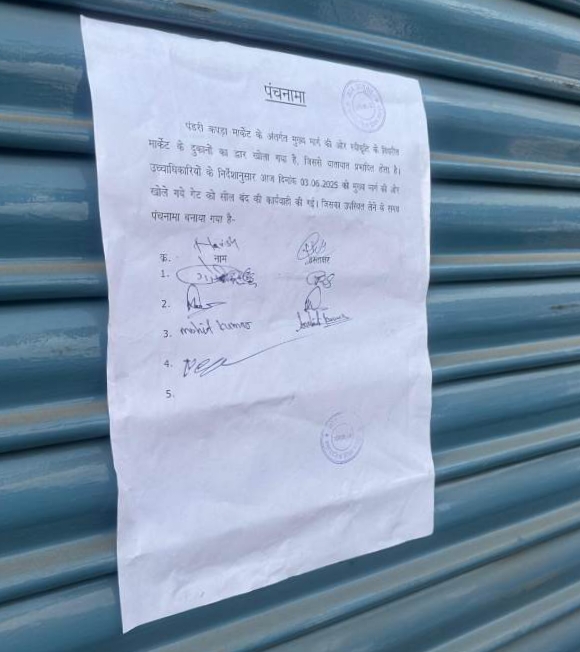 पंचनामा
पंडरी कपड़ा मार्केट के अंतर्गत मुख्य मार्ग की ओर स्वीकृति के विपरीत
मार्केट के दुकानों का द्वार खोला गया है, जिससे यातायात प्रभावित होता है।
उच्चाधिकारियों के निर्देशानुसार आज दिनांक 03.06.2025 को मुख्य मार्ग की ओर
खोले गये गेट को सील बंद की कार्यवाही की गई। जिसका उपस्थित लेने के समय
पंचनामा बनाया गया है:-
Harish
क्र. नाम हस्ताक्षर
1.
2.
3. mohid kumar
4.
5.